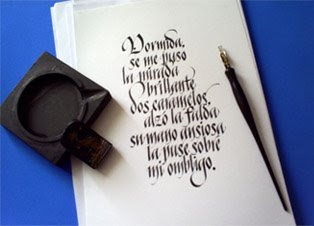 Dormida,
se me puso
la mirada
brillante
dos caramelos,
alzó la falda
su mano ansiosa
la puse sobre
mi ombligo.